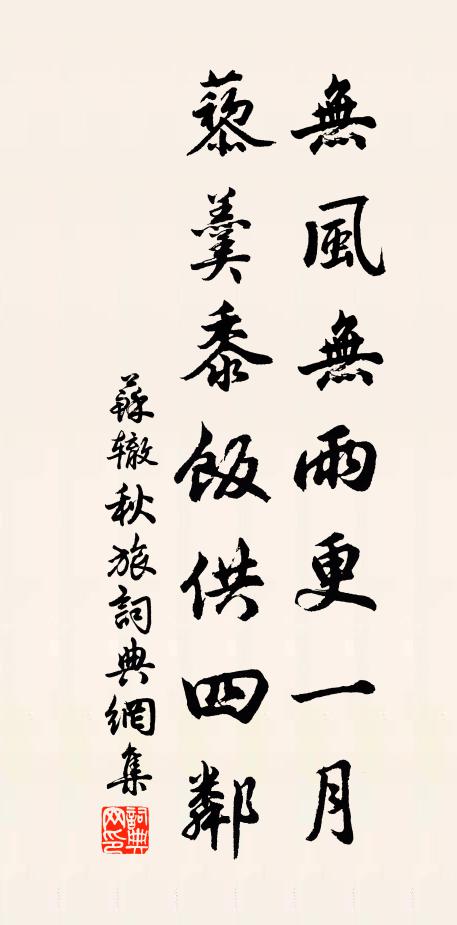 無風無雨更一月
藜羹黍飯供四鄰
蘇轍秋旅詞典網集
詞典网印